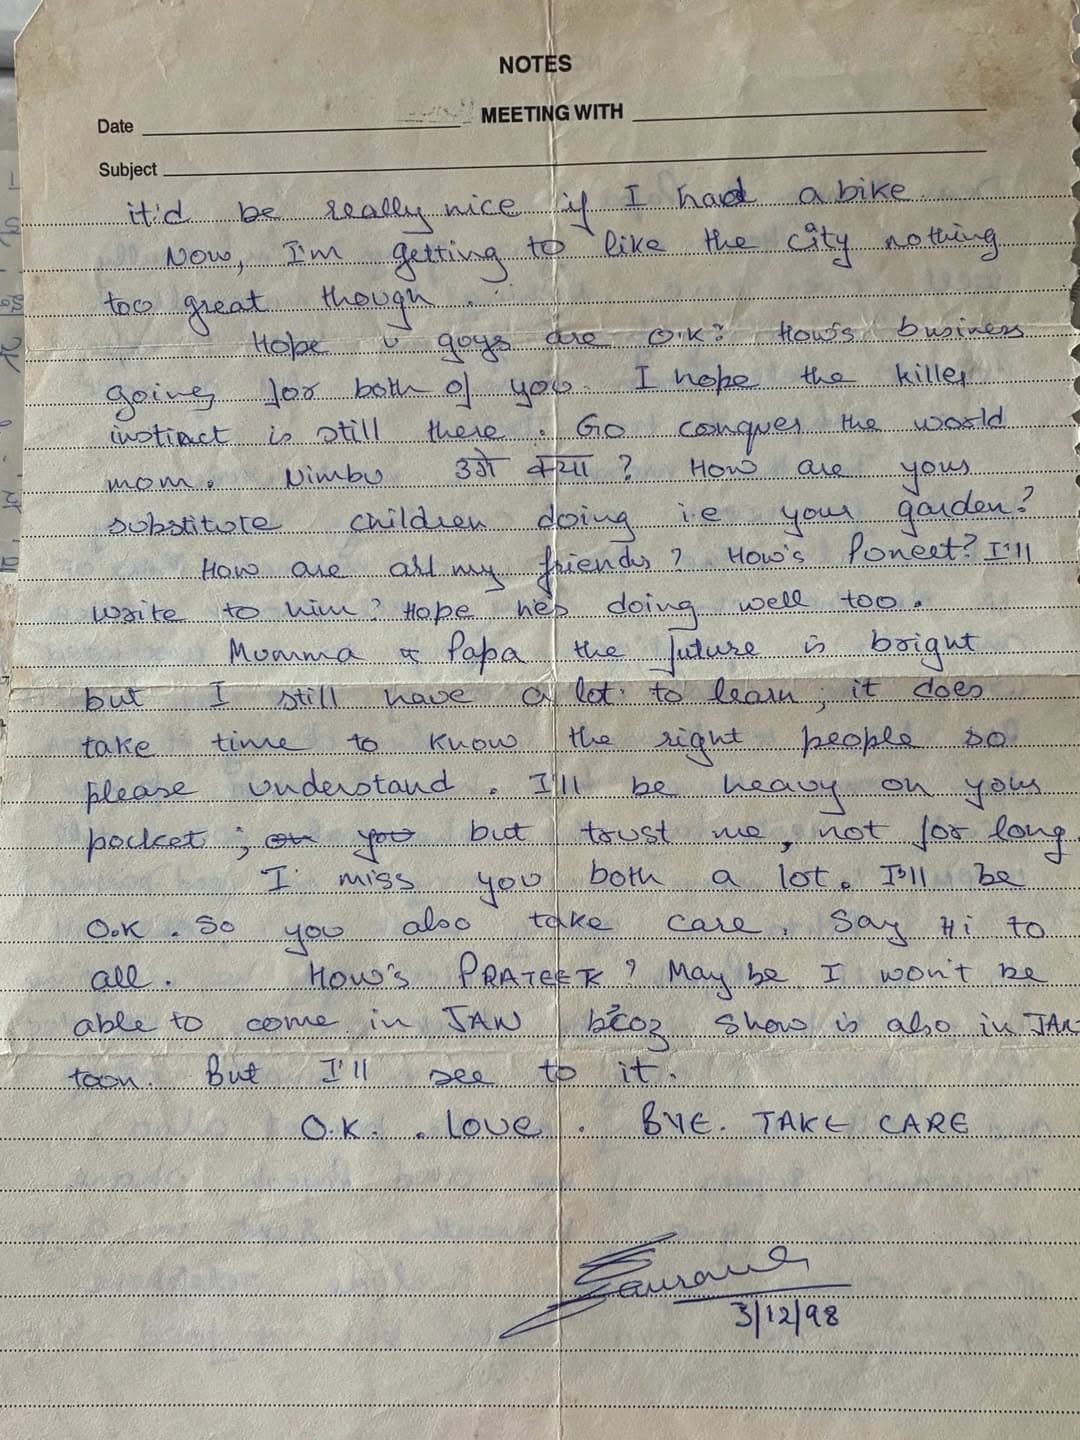 NOTES
Date MEETING WITH
Subject
it'd be really nice if I had a bike.
Now, I'm getting to like the city nothing
too great though.
Hope u guys are O.K? How's business
going for both of you. I hope the killer
instinct is still there. Go conquer the world
mom. Nimbu उगे क्या? How are your
substitute children doing i.e your garden?
How are all my friends? How's Poneet? I'll
write to him? Hope he's doing well too.
Mumma & Papa the future is bright
but I still have a lot to learn, it does
take time to know the right people so
please understand. I'll be heavy on your
pocket; on you but trust me, not for long.
I miss you both a lot. I'll be
O.K. So you also take care. Say Hi to
all. How's PRATEEK? May be I won't be
able to come in JAN b'coz show is also in JAN
toon. But I'll see to it.
O.K. . Love. BYE. TAKE CARE
Saurav
3/12/98